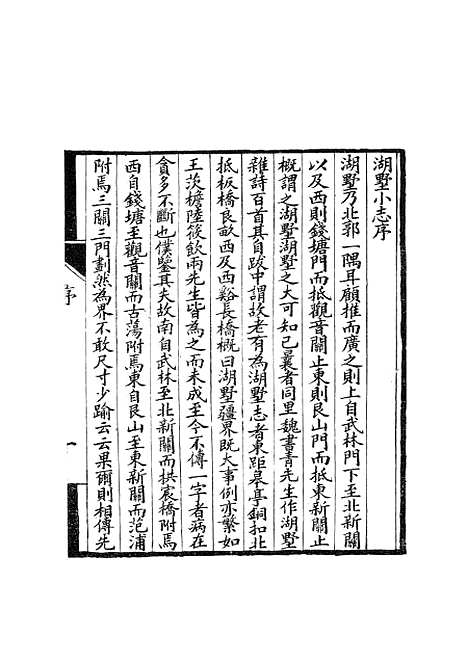 湖墅小志序
湖墅乃北郭一隅耳顧推而廣之則上自武林門下至北新關
以及西則錢塘門而抵觀音關止東則艮山門而抵東新關止
概謂之湖墅湖墅之大可知已曩者同里魏書青先生作湖墅
雜詩百首其自跋中謂故老有為湖墅志者東距皋亭銅扣北
抵板橋良畝西及西谿長橋概曰湖墅疆界既大事例亦繁如
王茨檐陸筱飲兩先生皆為之而未成至今不傳一字者病在
貪多不斷也僕鑒其失故南自武林至北新關而拱宸橋附焉
西自錢塘至觀音關而古蕩附焉東自艮山至東新關而范浦
附焉三關三門劃然為界不敢尺寸少踰云云果爾則相傳先
序
一